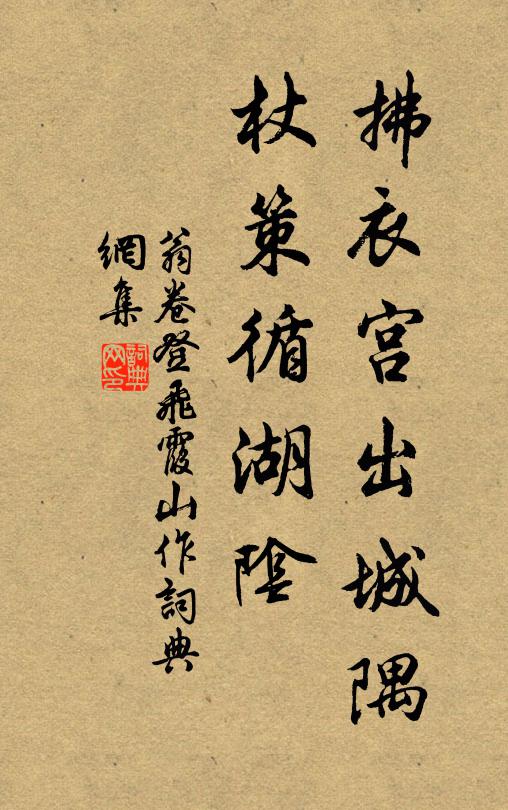 拂衣宫出城隅
杖策循湖陰
翁卷登飛霞山作詞典
網集
詞典
网印